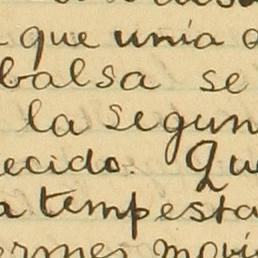 que unía
balsa se
la segun
ecido. Qu
a tempesta